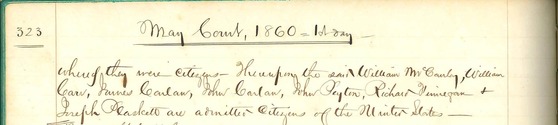 323
May Court, 1860 = 1st day —
whereof they were citizens — Thereupon the said William McCauly, William
Carr, James Carlan, John Carlan, John Peyton, Richard Finnegan &
Joseph Plackett are admitted Citizens of the United States —